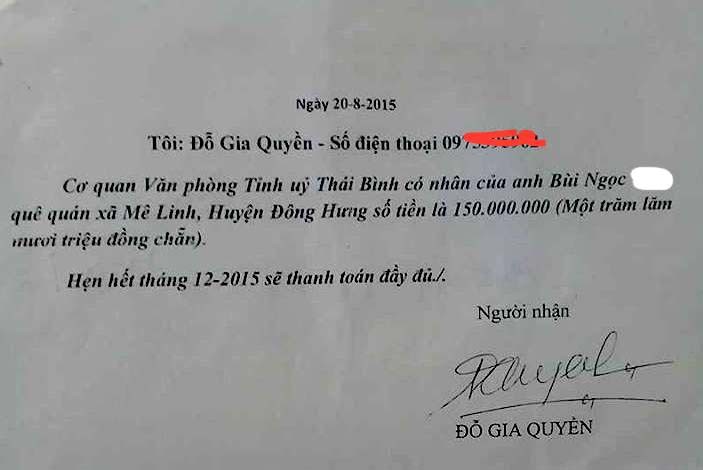 Ngày 20-8-2015
Tôi: Đỗ Gia Quyền - Số điện thoại 09
Cơ quan Văn phòng Tỉnh uỷ Thái Bình có nhân của anh Bùi Ngọc
quê quán xã Mê Linh, Huyện Đông Hưng số tiền là 150.000.000 (Một trăm lăm
mươi triệu đồng chẵn).
Hẹn hết tháng 12-2015 sẽ thanh toán đầy đủ./.
Người nhận
ĐỖ GIA QUYỀN